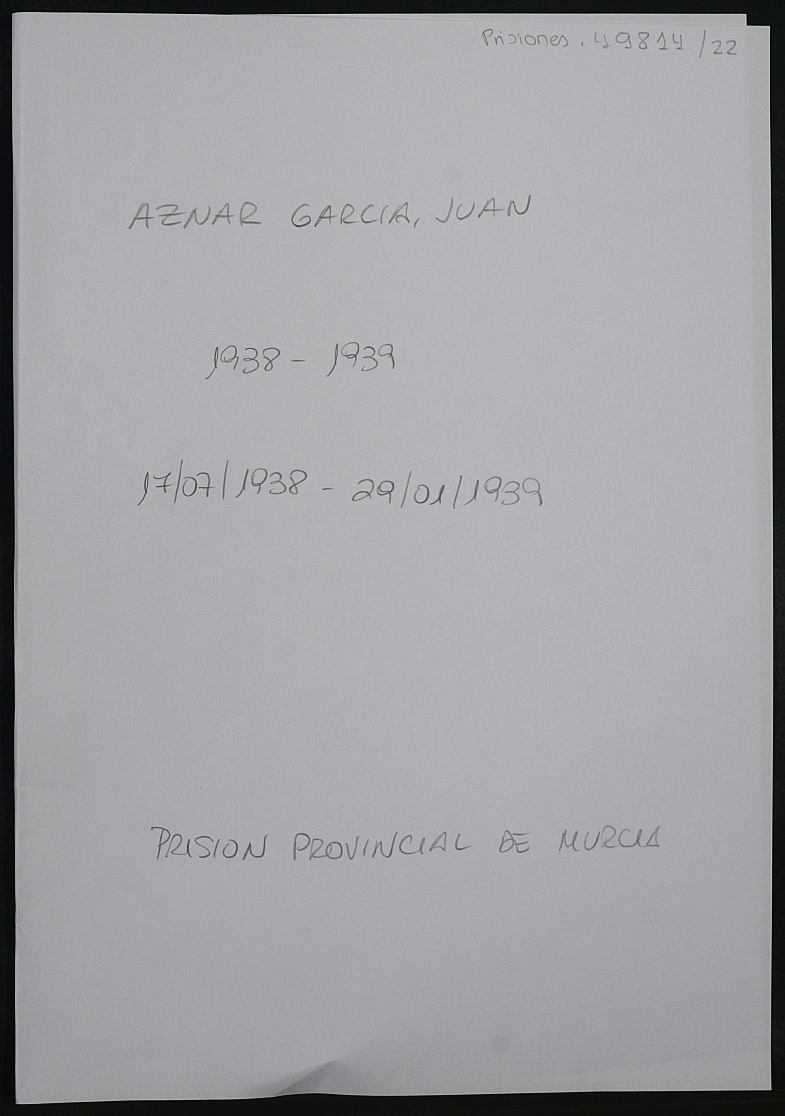 Prisiones. 49814/22
AZNAR GARCIA, JUAN
1938 - 1939
17/07/1938 - 29/01/1939
PRISION PROVINCIAL DE MURCIA